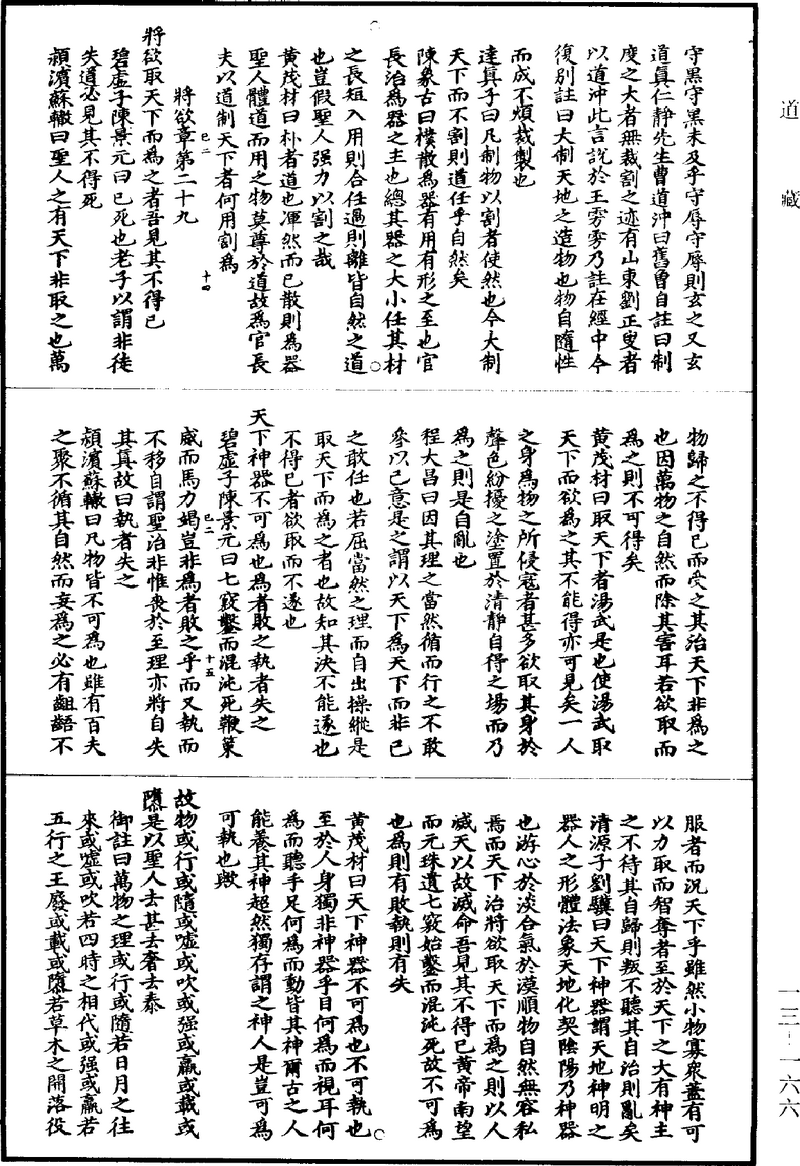 道藏
一三—一六六
守黑守黑未及乎守辱守辱則玄之又玄
道眞仁靜先生曹道沖曰舊曾自註曰制
度之大者無裁割之迹有山東劉正叟者
以道沖此言說於王雱雱乃註在經中今
復別註曰大制天地之造物也物自隨性
而成不煩裁製也
達眞子曰凡制物以割者使然也今大制
天下而不割則道任乎自然矣
陳象古曰樸散爲器有用有形之至也官
長治爲器之主也總其器之大小任其材
之長短入用則合任過則離皆自然之道
也豈假聖人强力以割之哉
黃茂材曰朴者道也渾然而已散則爲器
聖人體道而用之物莫尊於道故爲官長
夫以道制天下者何用割爲
已二
十四
將欲章第二十九
將欲取天下而爲之者吾見其不得已
碧虛子陳景元曰已死也老子以謂非徒
失道必見其不得死
潁濱蘇轍曰聖人之有天下非取之也萬
物歸之不得已而受之其治天下非爲之
也因萬物之自然而除其害耳若欲取而
爲之則不可得矣
黃茂材曰取天下者湯武是也使湯武取
天下而欲爲之其不能得亦可見矣一人
之身爲物之所侵寇者甚多欲取其身於
聲色紛擾之塗置於清靜自得之場而乃
爲之則是自亂也
程大昌曰因其理之當然循而行之不敢
參以已意是之謂以天下爲天下而非已
之敢任也若屈當然之理而自出操縱是
取天下而爲之者也故知其決不能遂也
不得已者欲取而不遂也
天下神器不可爲也爲者敗之執者失之
碧虛子陳景元曰七竅鑿而混沌死鞭策
威而馬力竭豈非爲者敗之乎而又執而
已二
十五
不移自謂聖治非惟喪於至理亦將自失
其眞故曰執者失之
潁濱蘇轍曰凡物皆不可爲也雖有百夫
之聚不循其自然而妄爲之必有齟齬不
服者而況天下乎雖然小物寡衆蓋有可
以力取而智奪者至於天下之大有神主
之不待其自歸則叛不聽其自治則亂矣
清源子劉驥曰天下神器謂天地神明之
器人之形體法象天地化契陰陽乃神器
也游心於淡合氣於漠順物自然無容私
焉而天下治將欲取天下而爲之則以人
滅天以故滅命吾見其不得已黃帝南望
而元珠遺七竅始鑿而混沌死故不可爲
也爲則有敗執則有失
黃茂材曰天下神器不可爲也不可執也
至於人身獨非神器乎目何爲而視耳何
爲而聽手足何爲而動皆其神爾古之人
能養其神超然獨存謂之神人是豈可爲
可執也歟
故物或行或隨或噓或吹或强或羸或載或
隳是以聖人去甚去奢去泰
御註曰萬物之理或行或隨若日月之往
來或噓或吹若四時之相代或强或羸若
五行之王廢或載或隳若草木之開落役